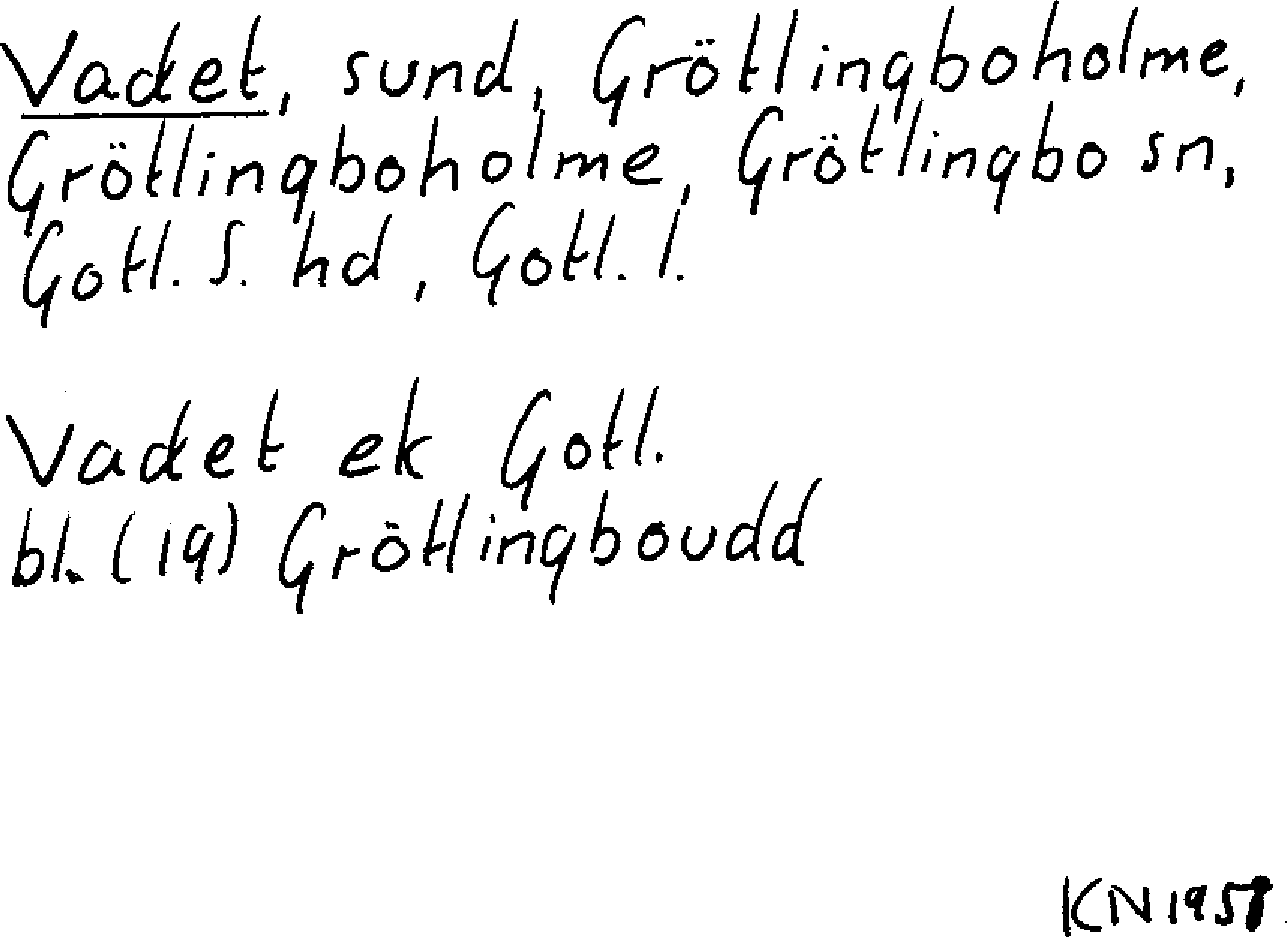 Vadet, sund, Grötlingboholme,
Grötlingboholme, Grötlingbo sn,
Gotl. S. hd, Gotl. l.
Vadet ek Gotl.
bl. (19) Grötlingboudd